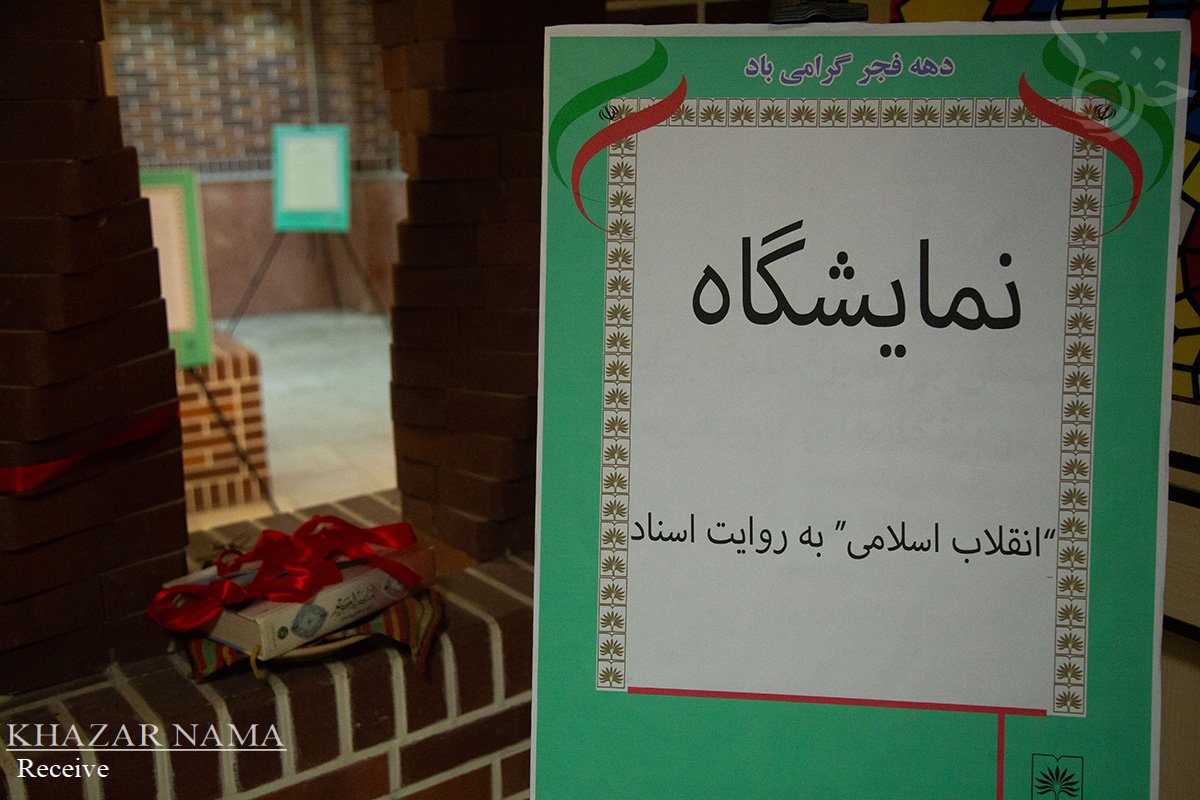 دهه فجر گرامی باد
نمایشگاه
“انقلاب اسلامی” به روایت اسناد
KHAZAR NAMA
Receive